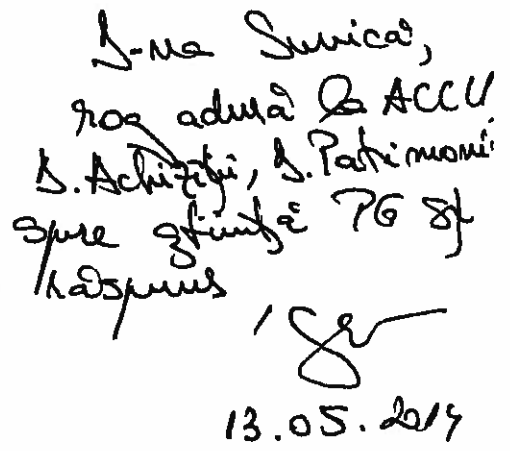 D-na Sunica,
rog adusă la ACCU
D. Achiziții, D. Patrimoni
spre știință PG și
răspuns
13.05.2014